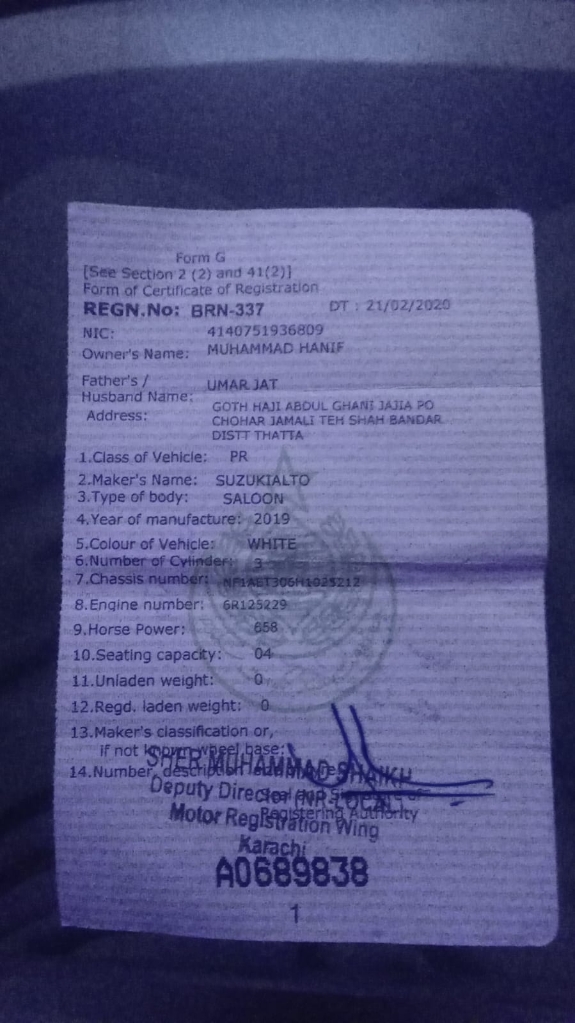 Form G
[See Section 2 (2) and 41(2)]
Form of Certificate of Registration
REGN.No: BRN-337 DT : 21/02/2020
NIC: 4140751936809
Owner's Name: MUHAMMAD HANIF
Father's /
Husband Name: UMAR JAT
Address: GOTH HAJI ABDUL GHANI JAJIA PO
CHOHAR JAMALI TEH SHAH BANDAR
DISTT THATTA
1.Class of Vehicle: PR
2.Maker's Name: SUZUKIALTO
3.Type of body: SALOON
4.Year of manufacture: 2019
5.Colour of Vehicle: WHITE
6.Number of Cylinder: 3
7.Chassis number:
8.Engine number: 6R125229
9.Horse Power: 658
10.Seating capacity: 04
11.Unladen weight: 0
12.Regd. laden weight: 0
13.Maker's classification or,
if not known wheel base:
14.Number, description
SHER MUHAMMAD SHAIKH
Deputy Director
Registering Authority
Motor Registration Wing
Karachi
A0689838
1